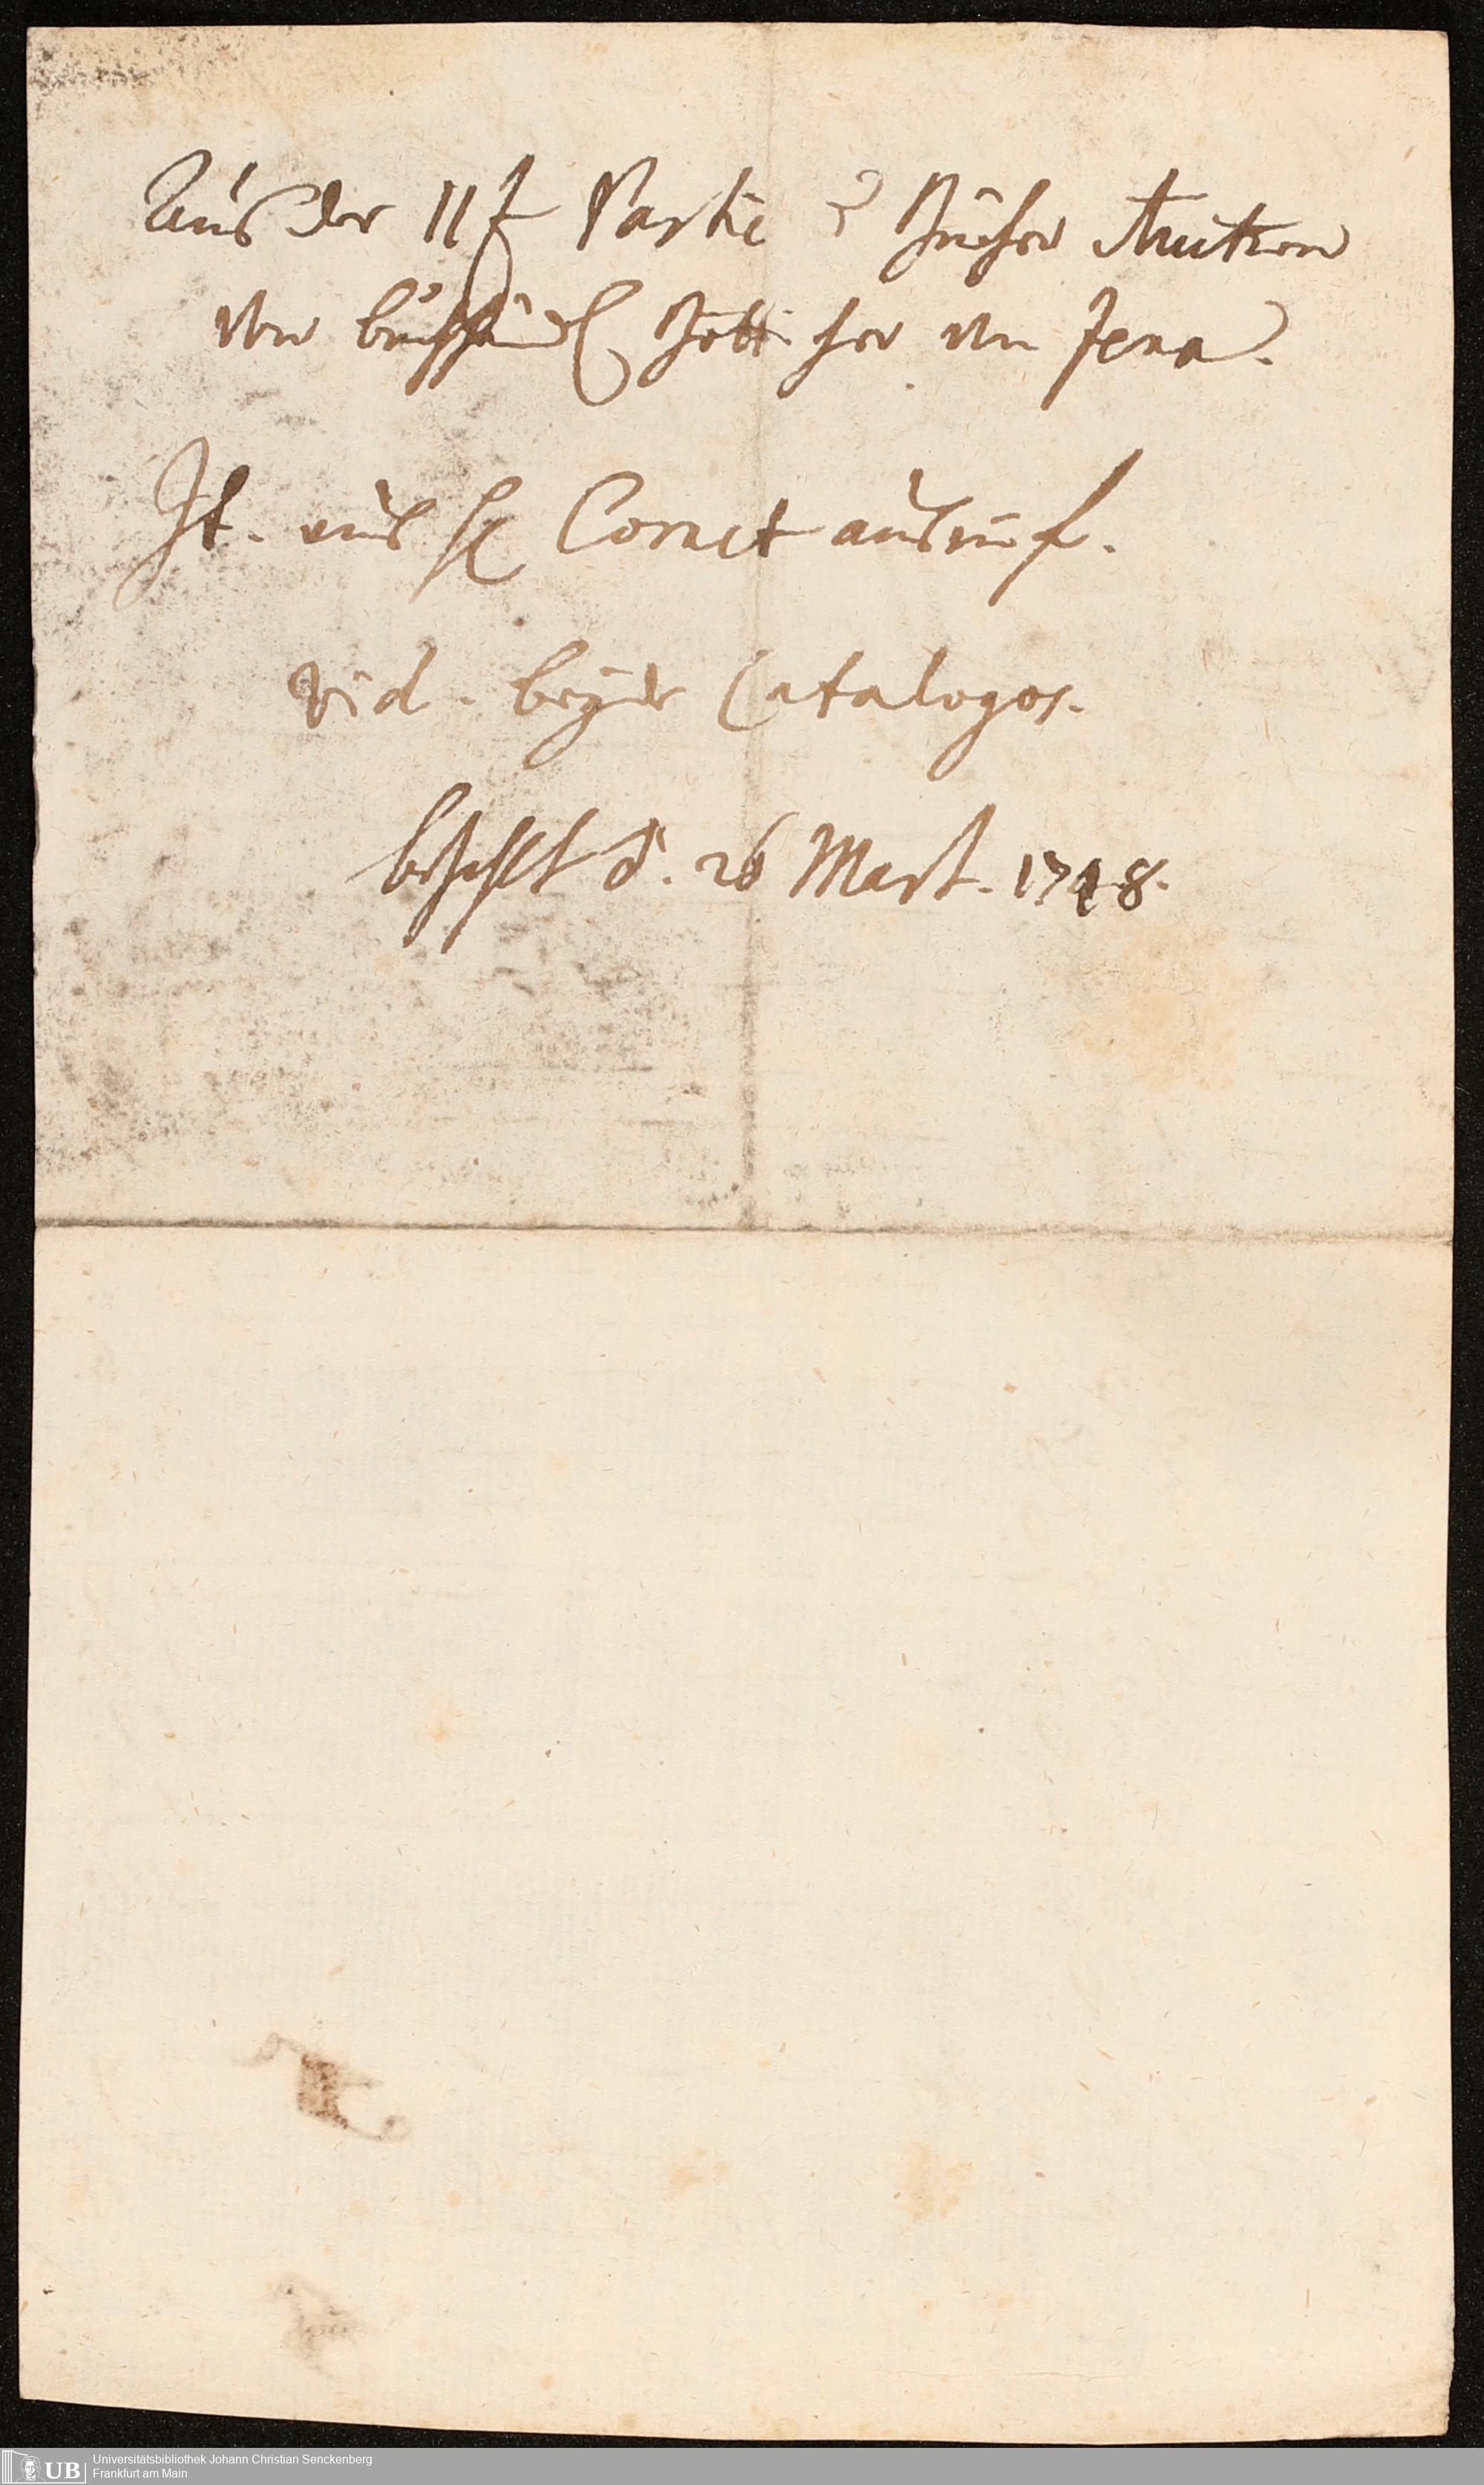 Aus der II t Partie d Bücher Auction
von buchhändl Böttcher von Jena.
It. aus H Cornet ausruf.
vid. beyde Catalogos.
bestellt d. 26 Mart. 1748.
UB Universitätsbibliothek Johann Christian Senckenberg
Frankfurt am Main